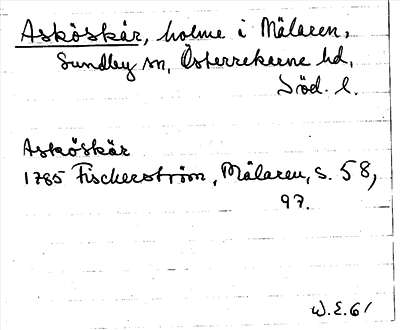 Asköskär, holme i Mälaren,
Sundby sn, Österrekarne hd,
Söd. l.
Asköskär
1785 Fischerström, Mälaren, s. 58,
97.
W.E.61